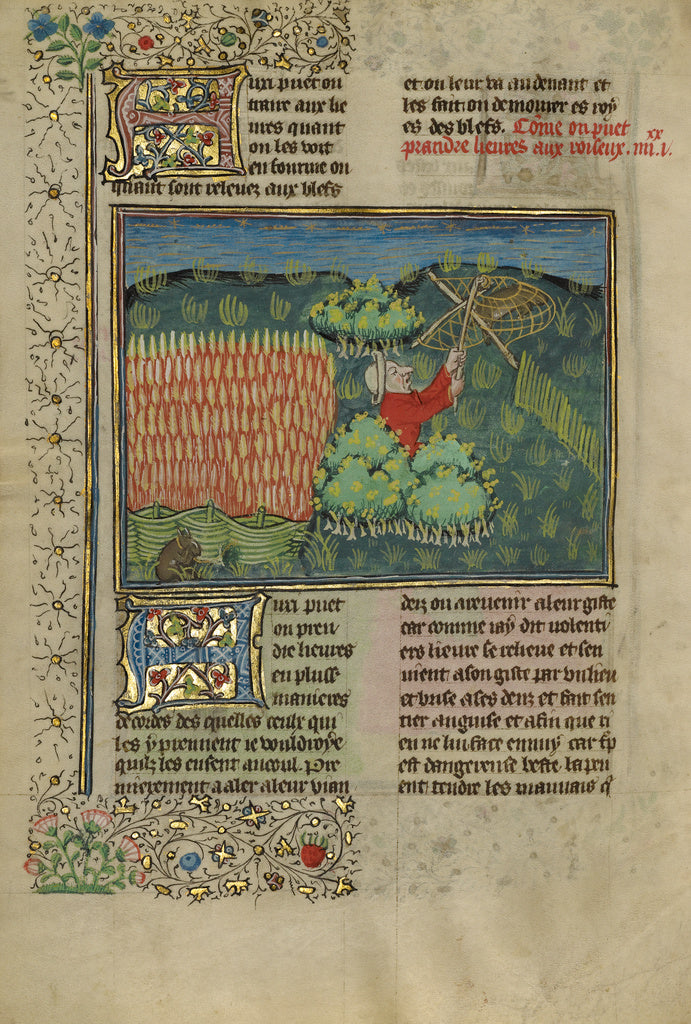 Auxi puet on
traire aux lie
ures quant
on les voit
en fourme ou
quant sont releuez aux blefs
et on leur va au deuant et
les fait on demourer es roy
es des blefs. Cõme on puet
prandre lieures aux roiseux. iiii.xx v.
Auxi puet
on pren
dre lieures
en pluss
manieres
de cordes des quelles ceulx qui
les y prennent ie vouldroye
quilz les eusent au coul. Pre
mierement a aler a leur vian
deiz ou a reuenir a leur giste
car comme iay dit volenti
ers lieure se relieue et sen
vient a son giste par vn lieu
et brise a ses denz et fait sen
tier auguise et afin que ri
en ne lui face ennuy car
est dangereuse beste la peu
ent tendre les mauuais